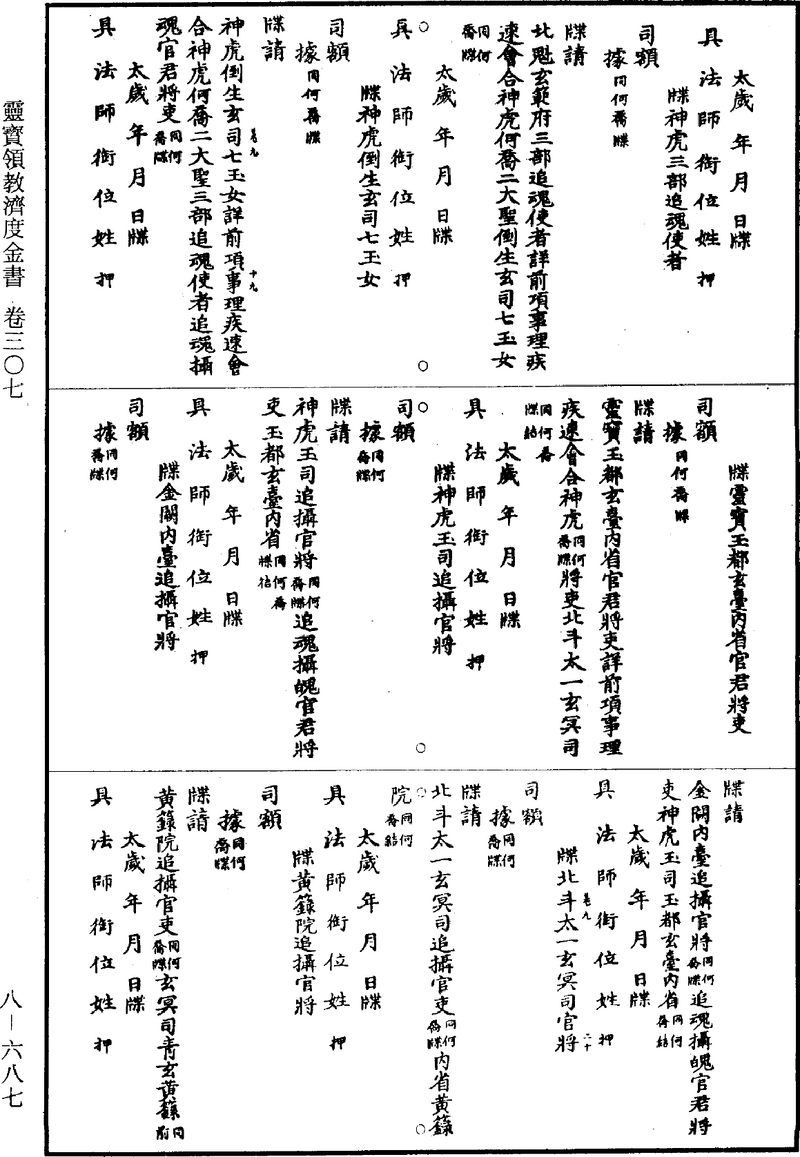 太歲 年 月 日牒
具 法 師 銜 位 姓 押
牒神虎三部追魂使者
司額
據同何喬牒
牒請
北魁玄範府三部追魂使者詳前項事理疾
速會合神虎何喬二大聖倒生玄司七玉女
同何喬牒
太歲 年 月 日牒
具 法 師 銜 位 姓 押
牒神虎倒生玄司七玉女
司額
據同何喬牒
牒請
卷九 十九
神虎倒生玄司七玉女詳前項事理疾速會
合神虎何喬二大聖三部追魂使者追魂攝
魂官君將吏同何喬牒
太歲 年 月 日牒
具 法 師 銜 位 姓 押
牒靈寶玉都玄臺內省官君將吏
司額
據同何喬牒
牒請
靈寶玉都玄臺內省官君將吏詳前項事理
疾速會合神虎同何喬牒將吏北斗太一玄冥司
同何喬牒結
太歲 年 月 日牒
具 法 師 銜 位 姓 押
牒神虎玉司追攝官將
司額
據同何喬牒
牒請
神虎玉司追攝官將同何喬牒追魂攝魄官君將
吏玉都玄臺內省同何喬牒結
太歲 年 月 日牒
具 法 師 銜 位 姓 押
牒金闕內臺追攝官將
司額
據同何喬牒
牒請
金闕內臺追攝官將同何喬牒追魂攝魄官君將
吏神虎玉司玉都玄臺內省同何喬結
太歲 年 月 日牒
具 法 師 銜 位 姓 押
卷九 二十
牒北斗太一玄冥司官將
司額
據同何喬牒
牒請
北斗太一玄冥司追攝官吏同何喬牒內省黃籙
院同何喬結
太歲 年 月 日牒
具 法 師 銜 位 姓 押
牒黃籙院追攝官將
司額
據同何喬牒
牒請
黃籙院追攝官吏同何喬牒玄冥司青玄黃籙同前
太歲 年 月 日牒
具 法 師 銜 位 姓 押
靈寶領教濟度金書 卷三〇七
八－六八七